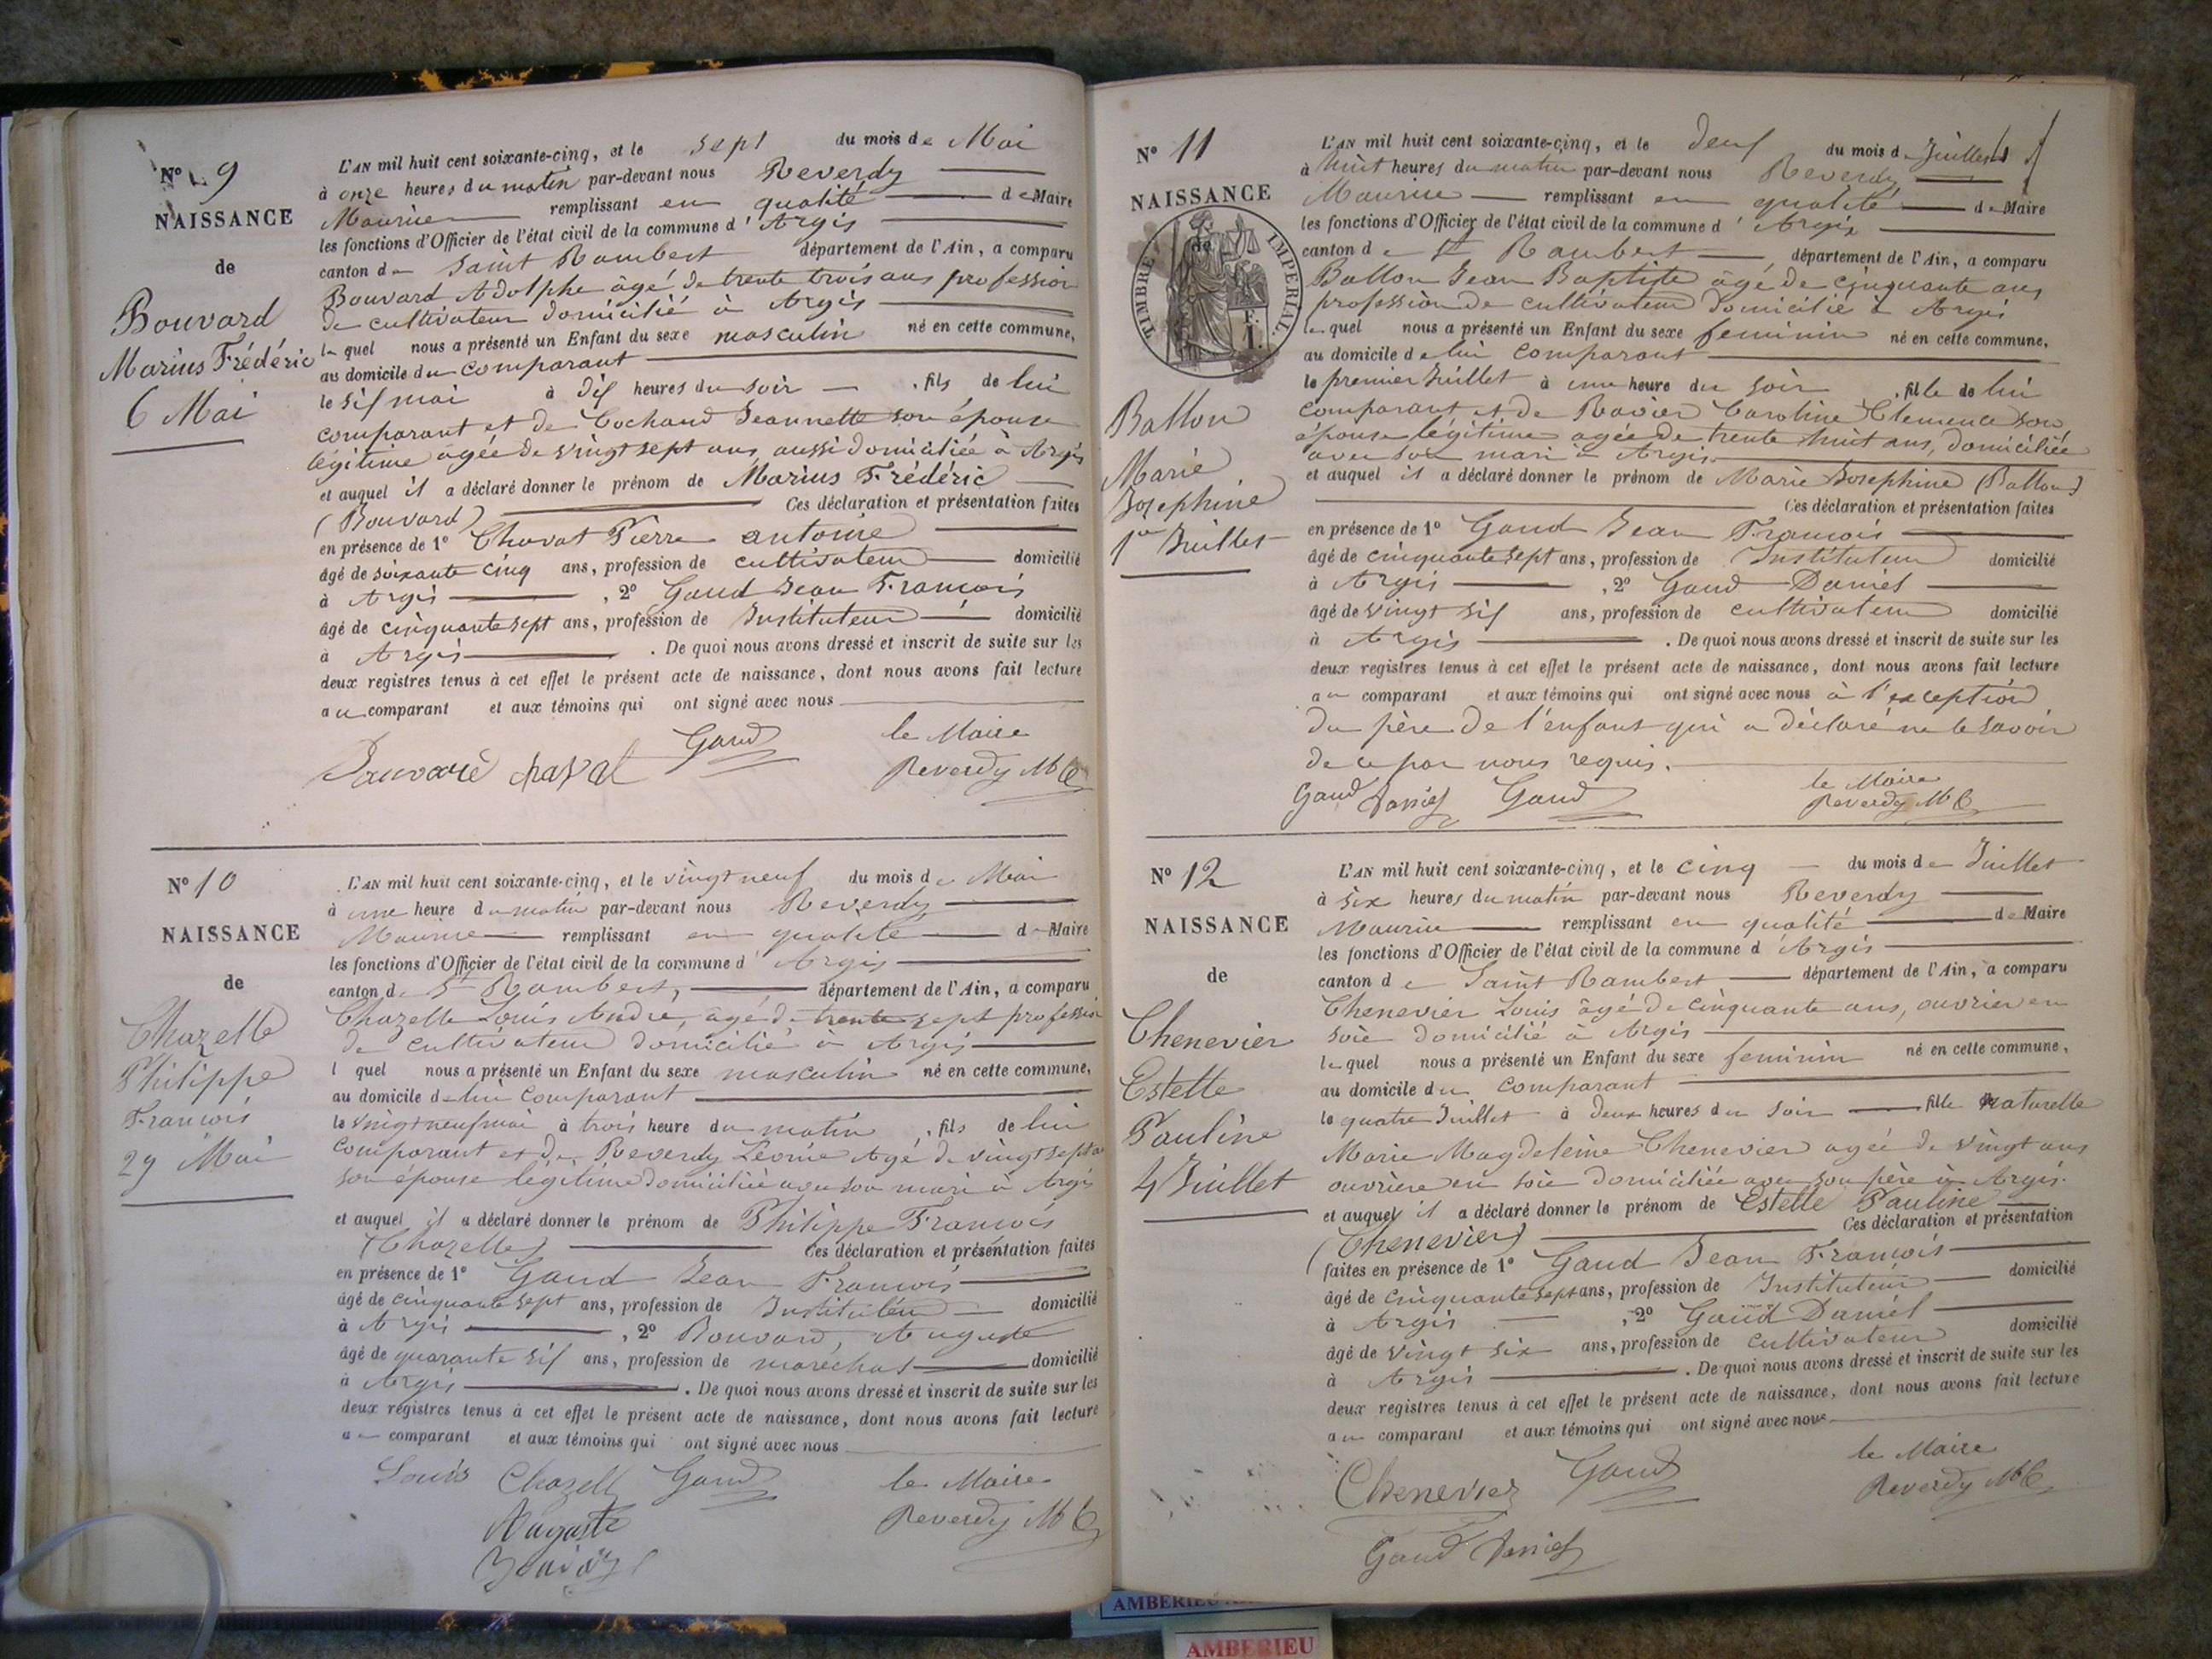 N° 9
NAISSANCE
de
Bouvard
Marius Frédéric
6 Mai
L'AN mil huit cent soixante-cinq, et le sept du mois de Mai
à onze heures du matin par-devant nous Reverdy
Maurice remplissant en qualité de Maire
les fonctions d'Officier de l'état civil de la commune d'Argis
canton de Saint Rambert département de l'Ain, a comparu
Bouvard Adolphe âgé de trente trois ans profession
de cultivateur domicilié à Argis
lequel nous a présenté un Enfant du sexe masculin né en cette commune,
au domicile du comparant
le six mai à dix heures du soir, fils de lui
comparant et de Cochand Jeannette son épouse
légitime âgée de vingt sept ans, aussi domiciliée à Argis
et auquel il a déclaré donner le prénom de Marius Frédéric
(Bouvard) Ces déclaration et présentation faites
en présence de 1° Chavat Pierre antoine
âgé de soixante cinq ans, profession de cultivateur domicilié
à Argis, 2° Gaud Jean François
âgé de cinquante sept ans, profession de Instituteur domicilié
à Argis. De quoi nous avons dressé et inscrit de suite sur les
deux registres tenus à cet effet le présent acte de naissance, dont nous avons fait lecture
au comparant et aux témoins qui ont signé avec nous
Gaud le Maire
chavat Reverdy
N° 10
NAISSANCE
de
Chazelle
Philippe
François
29 Mai
L'AN mil huit cent soixante-cinq, et le vingt neuf du mois de Mai
à une heure du matin par-devant nous Reverdy
Maurice remplissant en qualité de Maire
les fonctions d'Officier de l'état civil de la commune d'Argis
canton de St Rambert, département de l'Ain, a comparu
Chazelle Louis André, âgé de trente sept profession
de cultivateur domicilié à Argis
l quel nous a présenté un Enfant du sexe masculin né en cette commune,
au domicile de lui comparant
le vingt neuf mai à trois heure du matin, fils de lui
comparant et de Reverdy Léonie âgé de vingt sept
son épouse légitime domiciliée avec son mari à Argis
et auquel il a déclaré donner le prénom de Philippe François
(Chazelle) Ces déclaration et présentation faites
en présence de 1° Gaud Jean François
âgé de cinquante sept ans, profession de Instituteur domicilié
à Argis, 2° Bouvard, Auguste
âgé de quarante six ans, profession de maréchal domicilié
à Argis. De quoi nous avons dressé et inscrit de suite sur les
deux registres tenus à cet effet le présent acte de naissance, dont nous avons fait lecture
au comparant et aux témoins qui ont signé avec nous
Louis Chazelle Gaud le Maire
Auguste Reverdy
N° 11
NAISSANCE
de
TIMBRE IMPERIAL
F.
1.
Ballon
Marie
Josephine
1er Juillet
L'AN mil huit cent soixante-cinq, et le deux du mois de Juillet
à huit heures du matin par-devant nous Reverdy
Maurice remplissant en qualité de Maire
les fonctions d'Officier de l'état civil de la commune d'Argis
canton de St Rambert département de l'Ain, a comparu
Ballon Jean Baptiste âgé de cinquante ans
profession de cultivateur domicilié à Argis
lequel nous a présenté un Enfant du sexe feminin né en cette commune,
au domicile de lui comparant
le premier Juillet à une heure du soir, fille de lui
comparant et de Ravier Caroline Clemence son
épouse légitime agée de trente huit ans, domiciliée
avec son mari à Argis
et auquel il a déclaré donner le prénom de Marie Josephine (Ballon)
Ces déclaration et présentation faites
en présence de 1° Gaud Jean François
âgé de cinquante sept ans, profession de Instituteur domicilié
à Argis, 2° Gaud Daniel
âgé de vingt six ans, profession de cultivateur domicilié
à Argis. De quoi nous avons dressé et inscrit de suite sur les
deux registres tenus à cet effet le présent acte de naissance, dont nous avons fait lecture
au comparant et aux témoins qui ont signé avec nous à l'exception
du père de l'enfant qui a déclaré ne le savoir
de ce par nous requis.
Gaud Daniel Gaud le Maire
Reverdy
N° 12
NAISSANCE
de
Chenevier
Estelle
Pauline
4 Juillet
L'AN mil huit cent soixante-cinq, et le cinq du mois de Juillet
à six heures du matin par-devant nous Reverdy
Maurice remplissant en qualité de Maire
les fonctions d'Officier de l'état civil de la commune d'Argis
canton de Saint Rambert département de l'Ain, a comparu
Chenevier Louis âgé de cinquante ans, ouvrier en
soie domicilié à Argis
lequel nous a présenté un Enfant du sexe feminin né en cette commune,
au domicile du comparant
le quatre Juillet à deux heures du soir fille naturelle
Marie Magdeleine Chenevier agée de vingt ans
ouvrière en soie domiciliée avec son père à Argis.
et auquel il a déclaré donner le prénom de Estelle Pauline
(Chenevier) Ces déclaration et présentation
faites en présence de 1° Gaud Jean François
âgé de cinquante sept ans, profession de Instituteur domicilié
à Argis, 2° Gaud Daniel
âgé de vingt six ans, profession de cultivateur domicilié
à Argis. De quoi nous avons dressé et inscrit de suite sur les
deux registres tenus à cet effet le présent acte de naissance, dont nous avons fait lecture
au comparant et aux témoins qui ont signé avec nous
Chenevier Gaud le Maire
Reverdy
Gaud Daniel
AMBERIEU
AMBERIEU